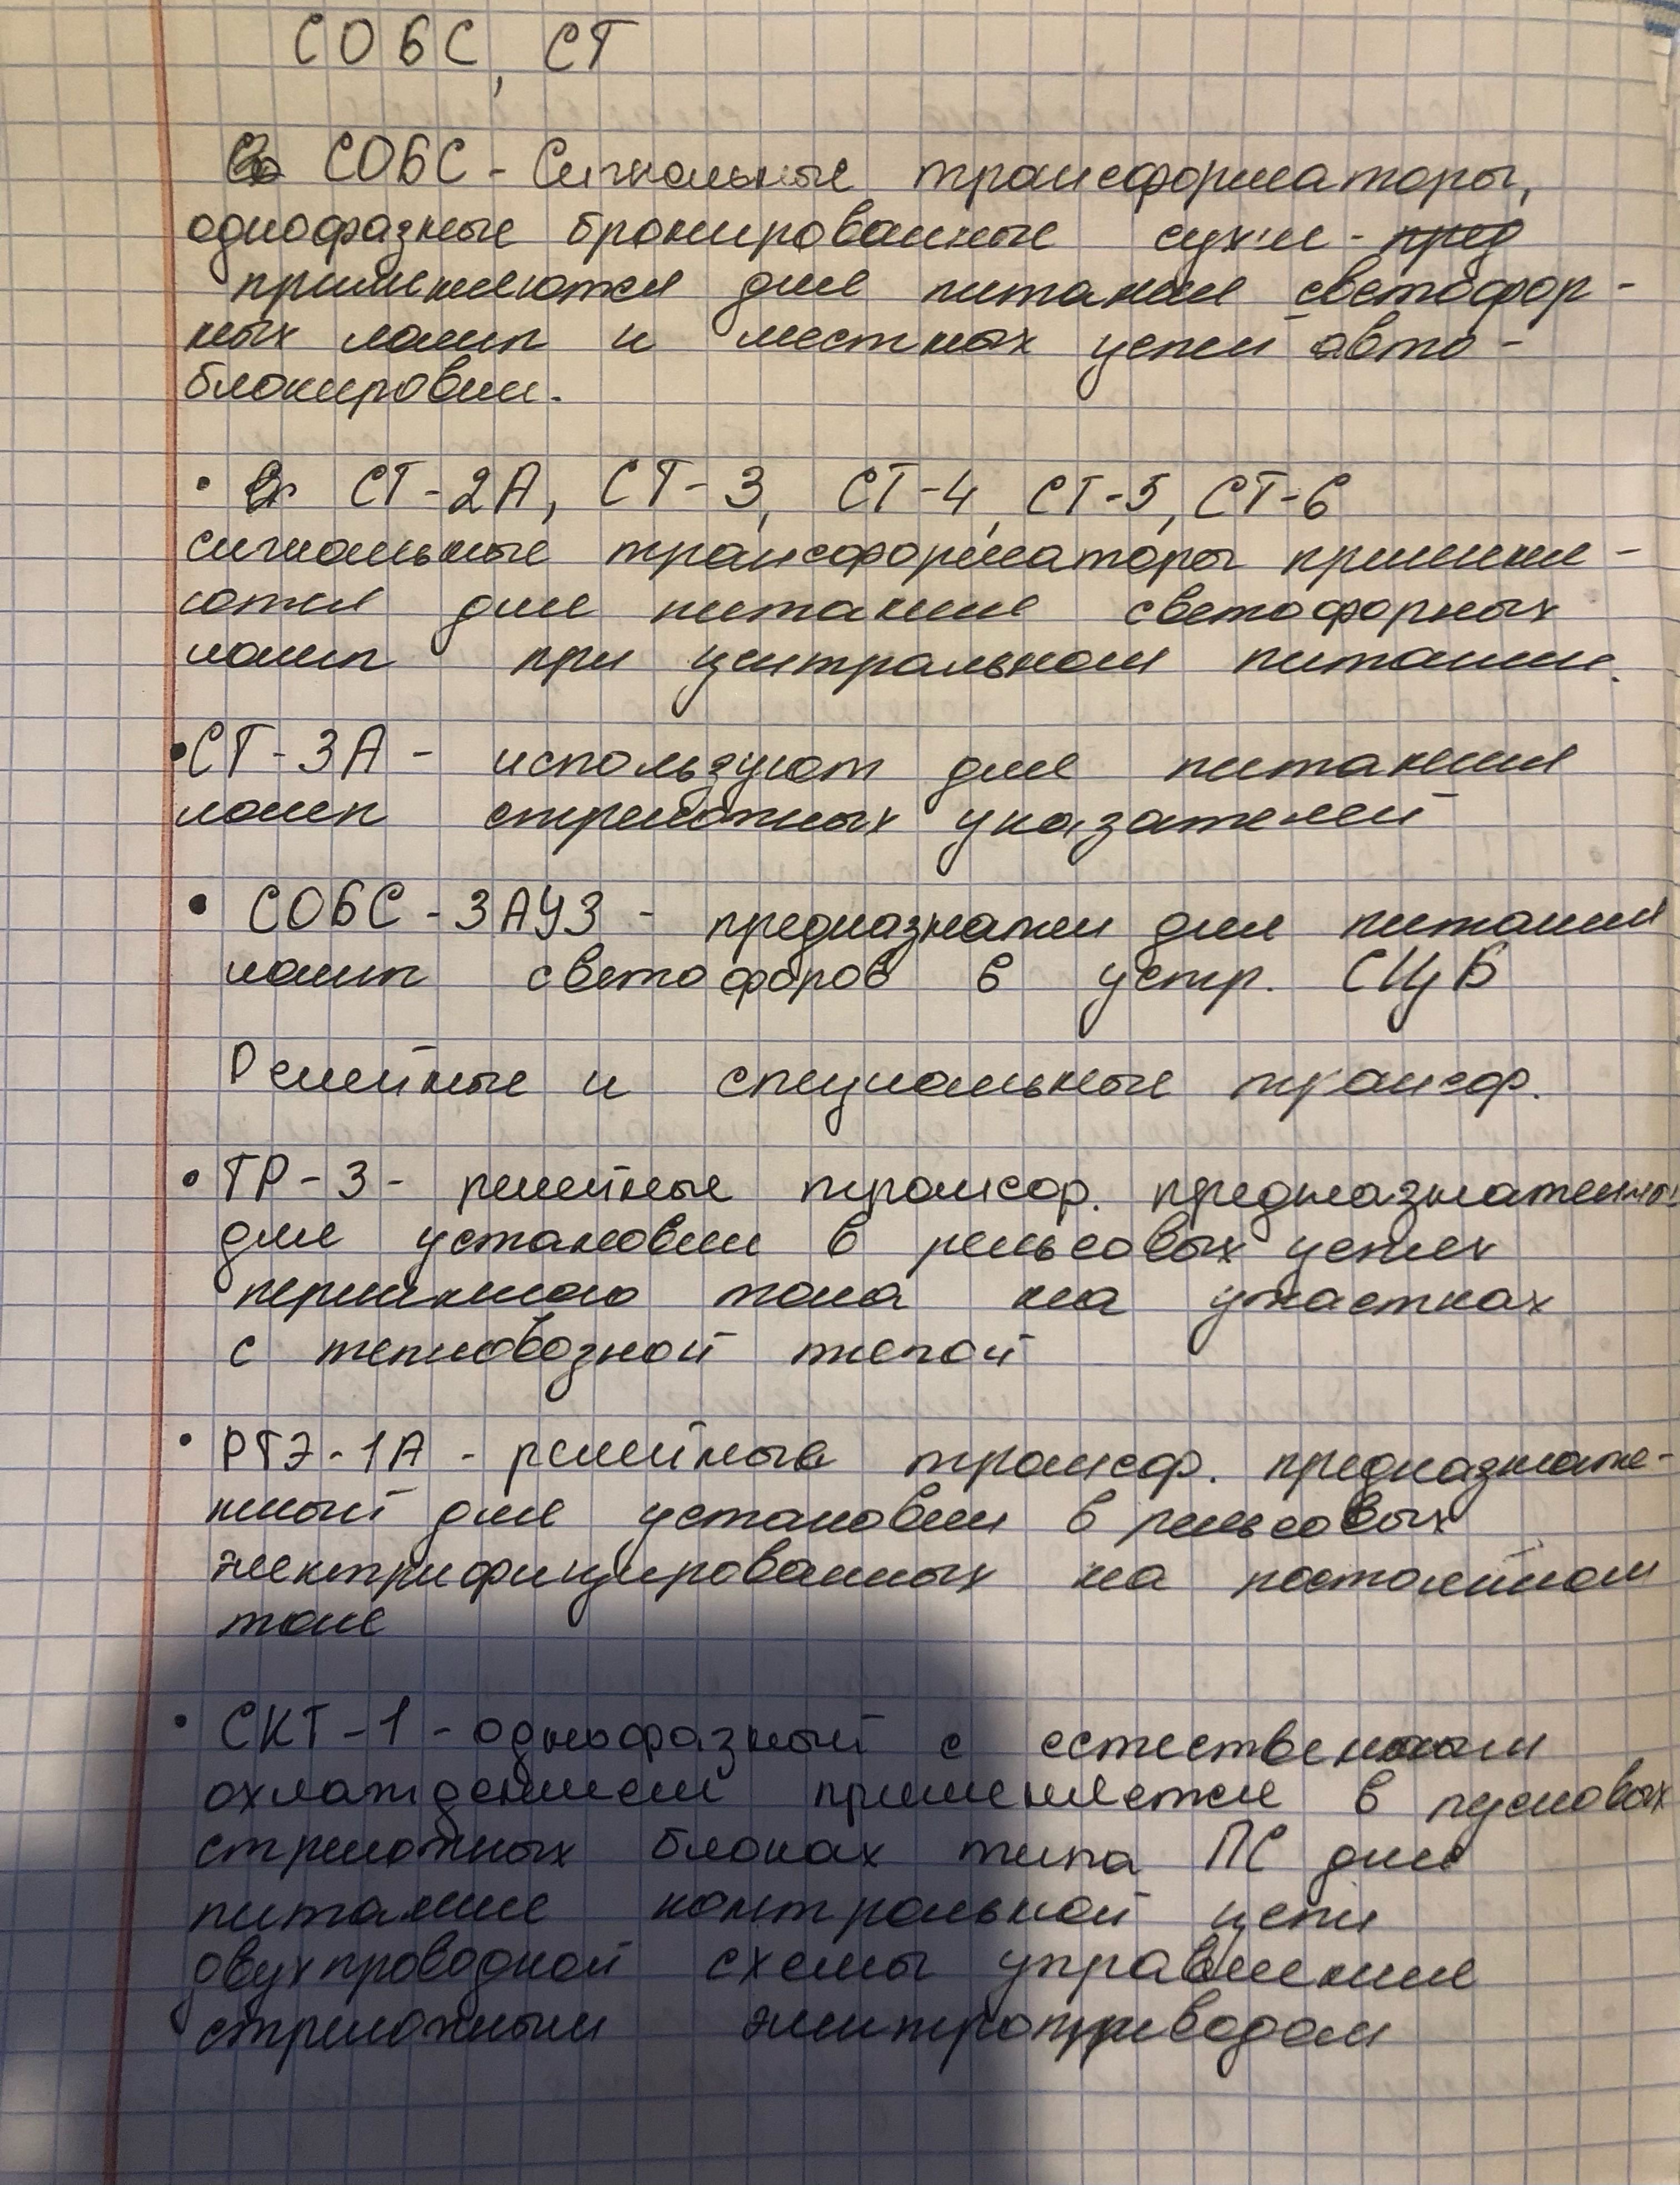 СОБС, СТ
СОБС - Сигнальные трансформаторы,
однофазные бронированные сухие - пред
применяются для питания светофор-
ных ламп и местных цепей авто-
блокировки.
• СТ-2А, СТ-3, СТ-4, СТ-5, СТ-6
сигнальные трансформаторы применя-
ются для питания светофорных
ламп при центральном питании.
• СТ-3А - используют для питания
ламп стрелочных указателей
• СОБС-3АУЗ - предназначен для питания
ламп светофоров в устр. СЦБ
Релейные и специальные трансф.
• ТР-3 - релейные трансф. предназначенны
для установки в рельсовых цепях
переменного тока на участках
с тепловозной тягой
• РТЭ-1А - релейный трансф. предназначе-
нный для установки в рельсовых
электрифицированных на постоянном
токе
• СКТ-1 - однофазный с естественным
охлаждением применяется в пусковых
стрелочных блоках типа ПС для
питание контрольной цепи
двухпроводной схемы управление
стрелочным электроприводом